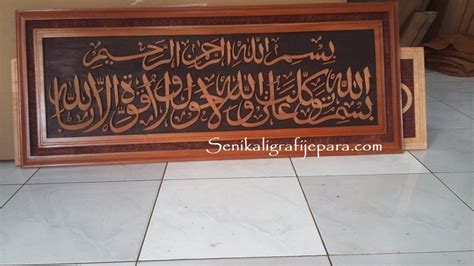 بسم الله الرحمن الرحيم
بسم الله توكلت على الله لا حول ولا قوة إلا بالله
Senikaligrafijepara.com